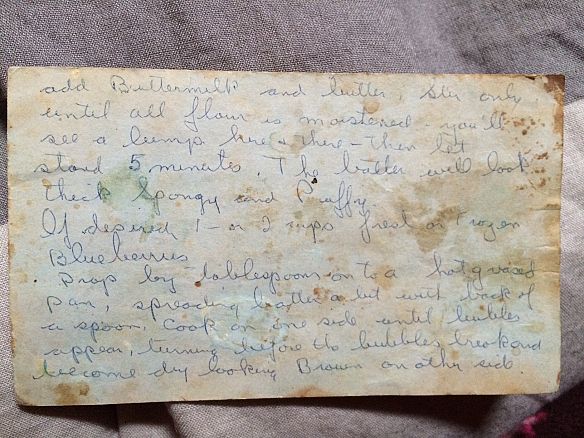 add Buttermilk and butter, Stir only
until all flour is moistened - you'll
see a lump here & there - then let
stand 5 minutes. The batter will look
thick Spongy and Puffy.
If desired 1 - or 2 cups fresh or Frozen
Blueberries
Drop by tablespoons on to a hot greased
pan, spreading batter a bit with back of
a spoon. Cook on one side until bubbles
appear, turning before the bubbles break and
become dry looking Brown on other side.